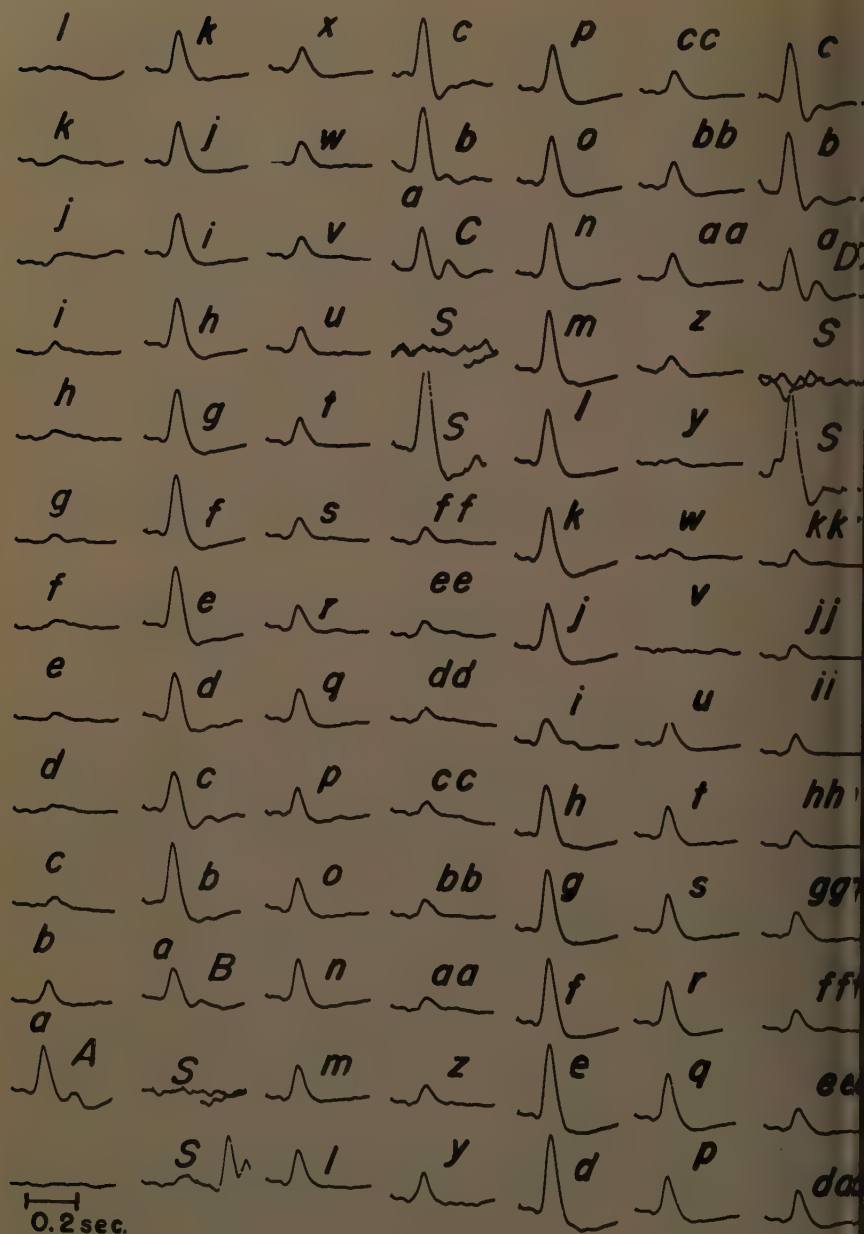 l k x c p cc c
k j w b o bb b
j i v a C n aa a D
i h u S m z S
h g t S l y S
g f s ff k w kk
f e r ee j v jj
e d q dd i u ii
d c p cc h t hh
c b o bb g s gg
b a B n aa f r ff
a A S m z e q ee
S l y d p
0.2 sec.